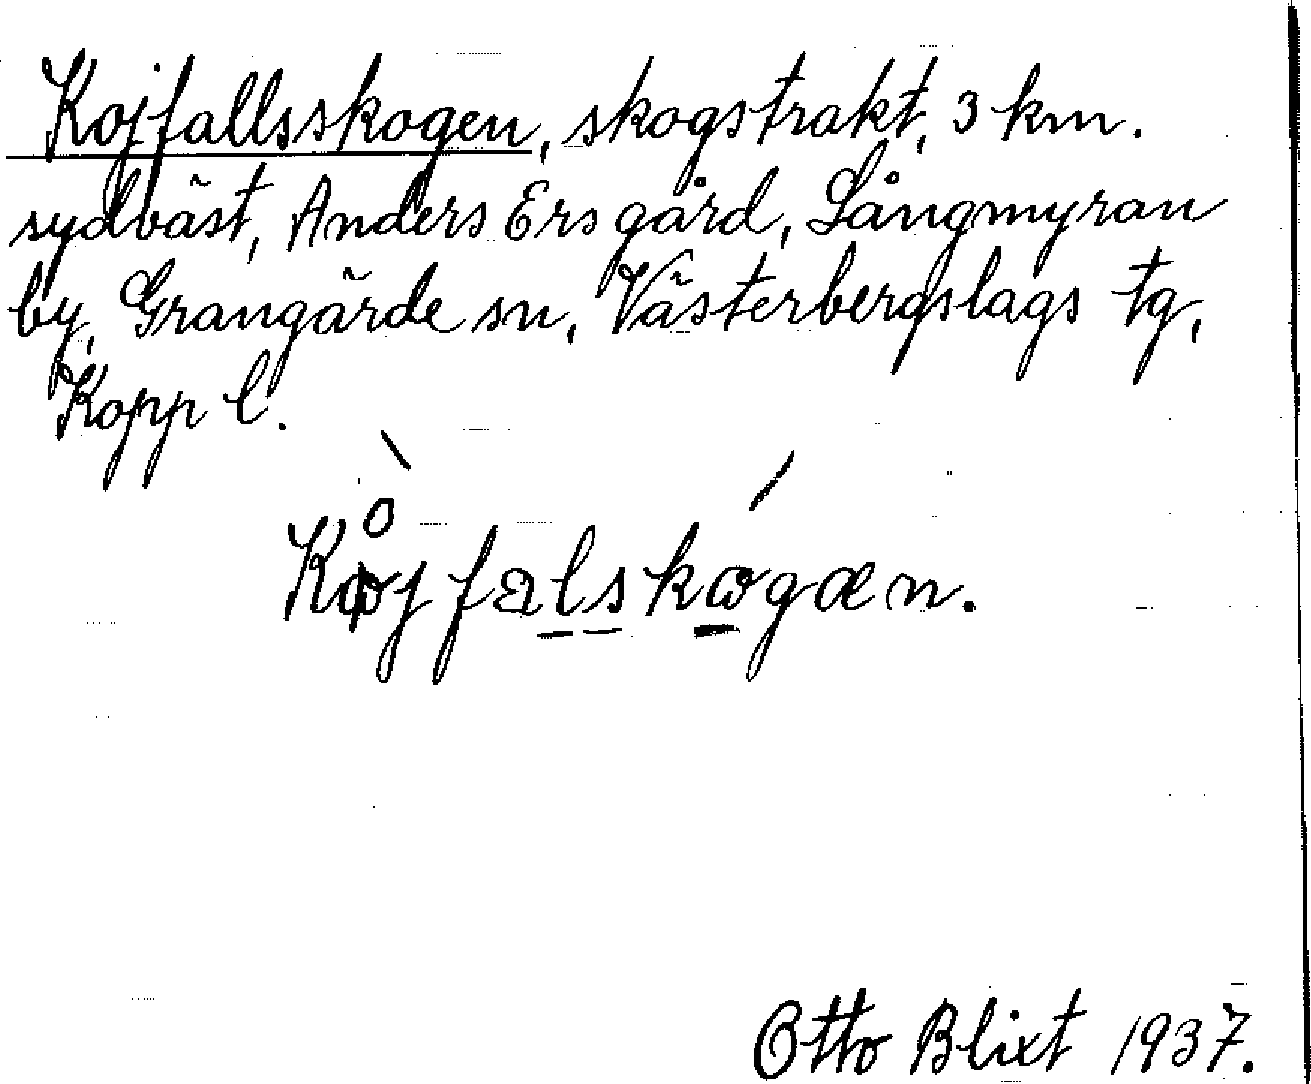 Kojfallsskogen, skogstrakt, 3 km.
sydväst, Anders Ers gård, Långmyran
by, Grangärde sn, Västerbergslags tg,
Kopp l.
Køjfalskogæn.
Otto Blixt 1937.